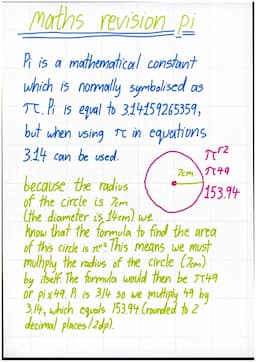 Maths revision pi
Pi is a mathematical constant
which is normally symbolised as
π. Pi is equal to 3.14159265359,
but when using π in equations
3.14 can be used.
7cm
πr²
π49
153.94
because the radius
of the circle is 7cm
(the diameter is 14cm) we
know that the formula to find the area
of this circle is πr². This means we must
multiply the radius of the circle (7cm)
by itself. The formula would then be π49
or pi x 49. Pi is 3.14 so we multiply 49 by
3.14, which equals 153.94 (rounded to 2
decimal places/2dp).